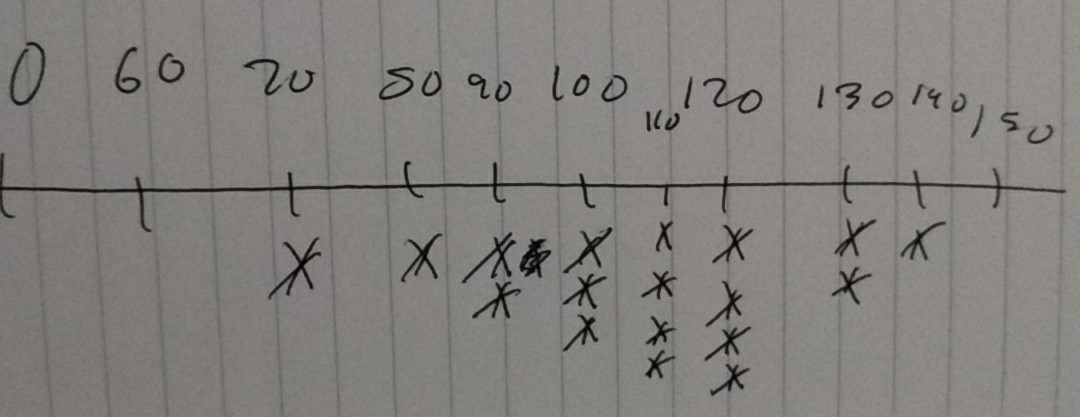 0 60 70 80 90 100 110 120 130 140 150
X X X X X X X X
X X X X X
X X X
X X